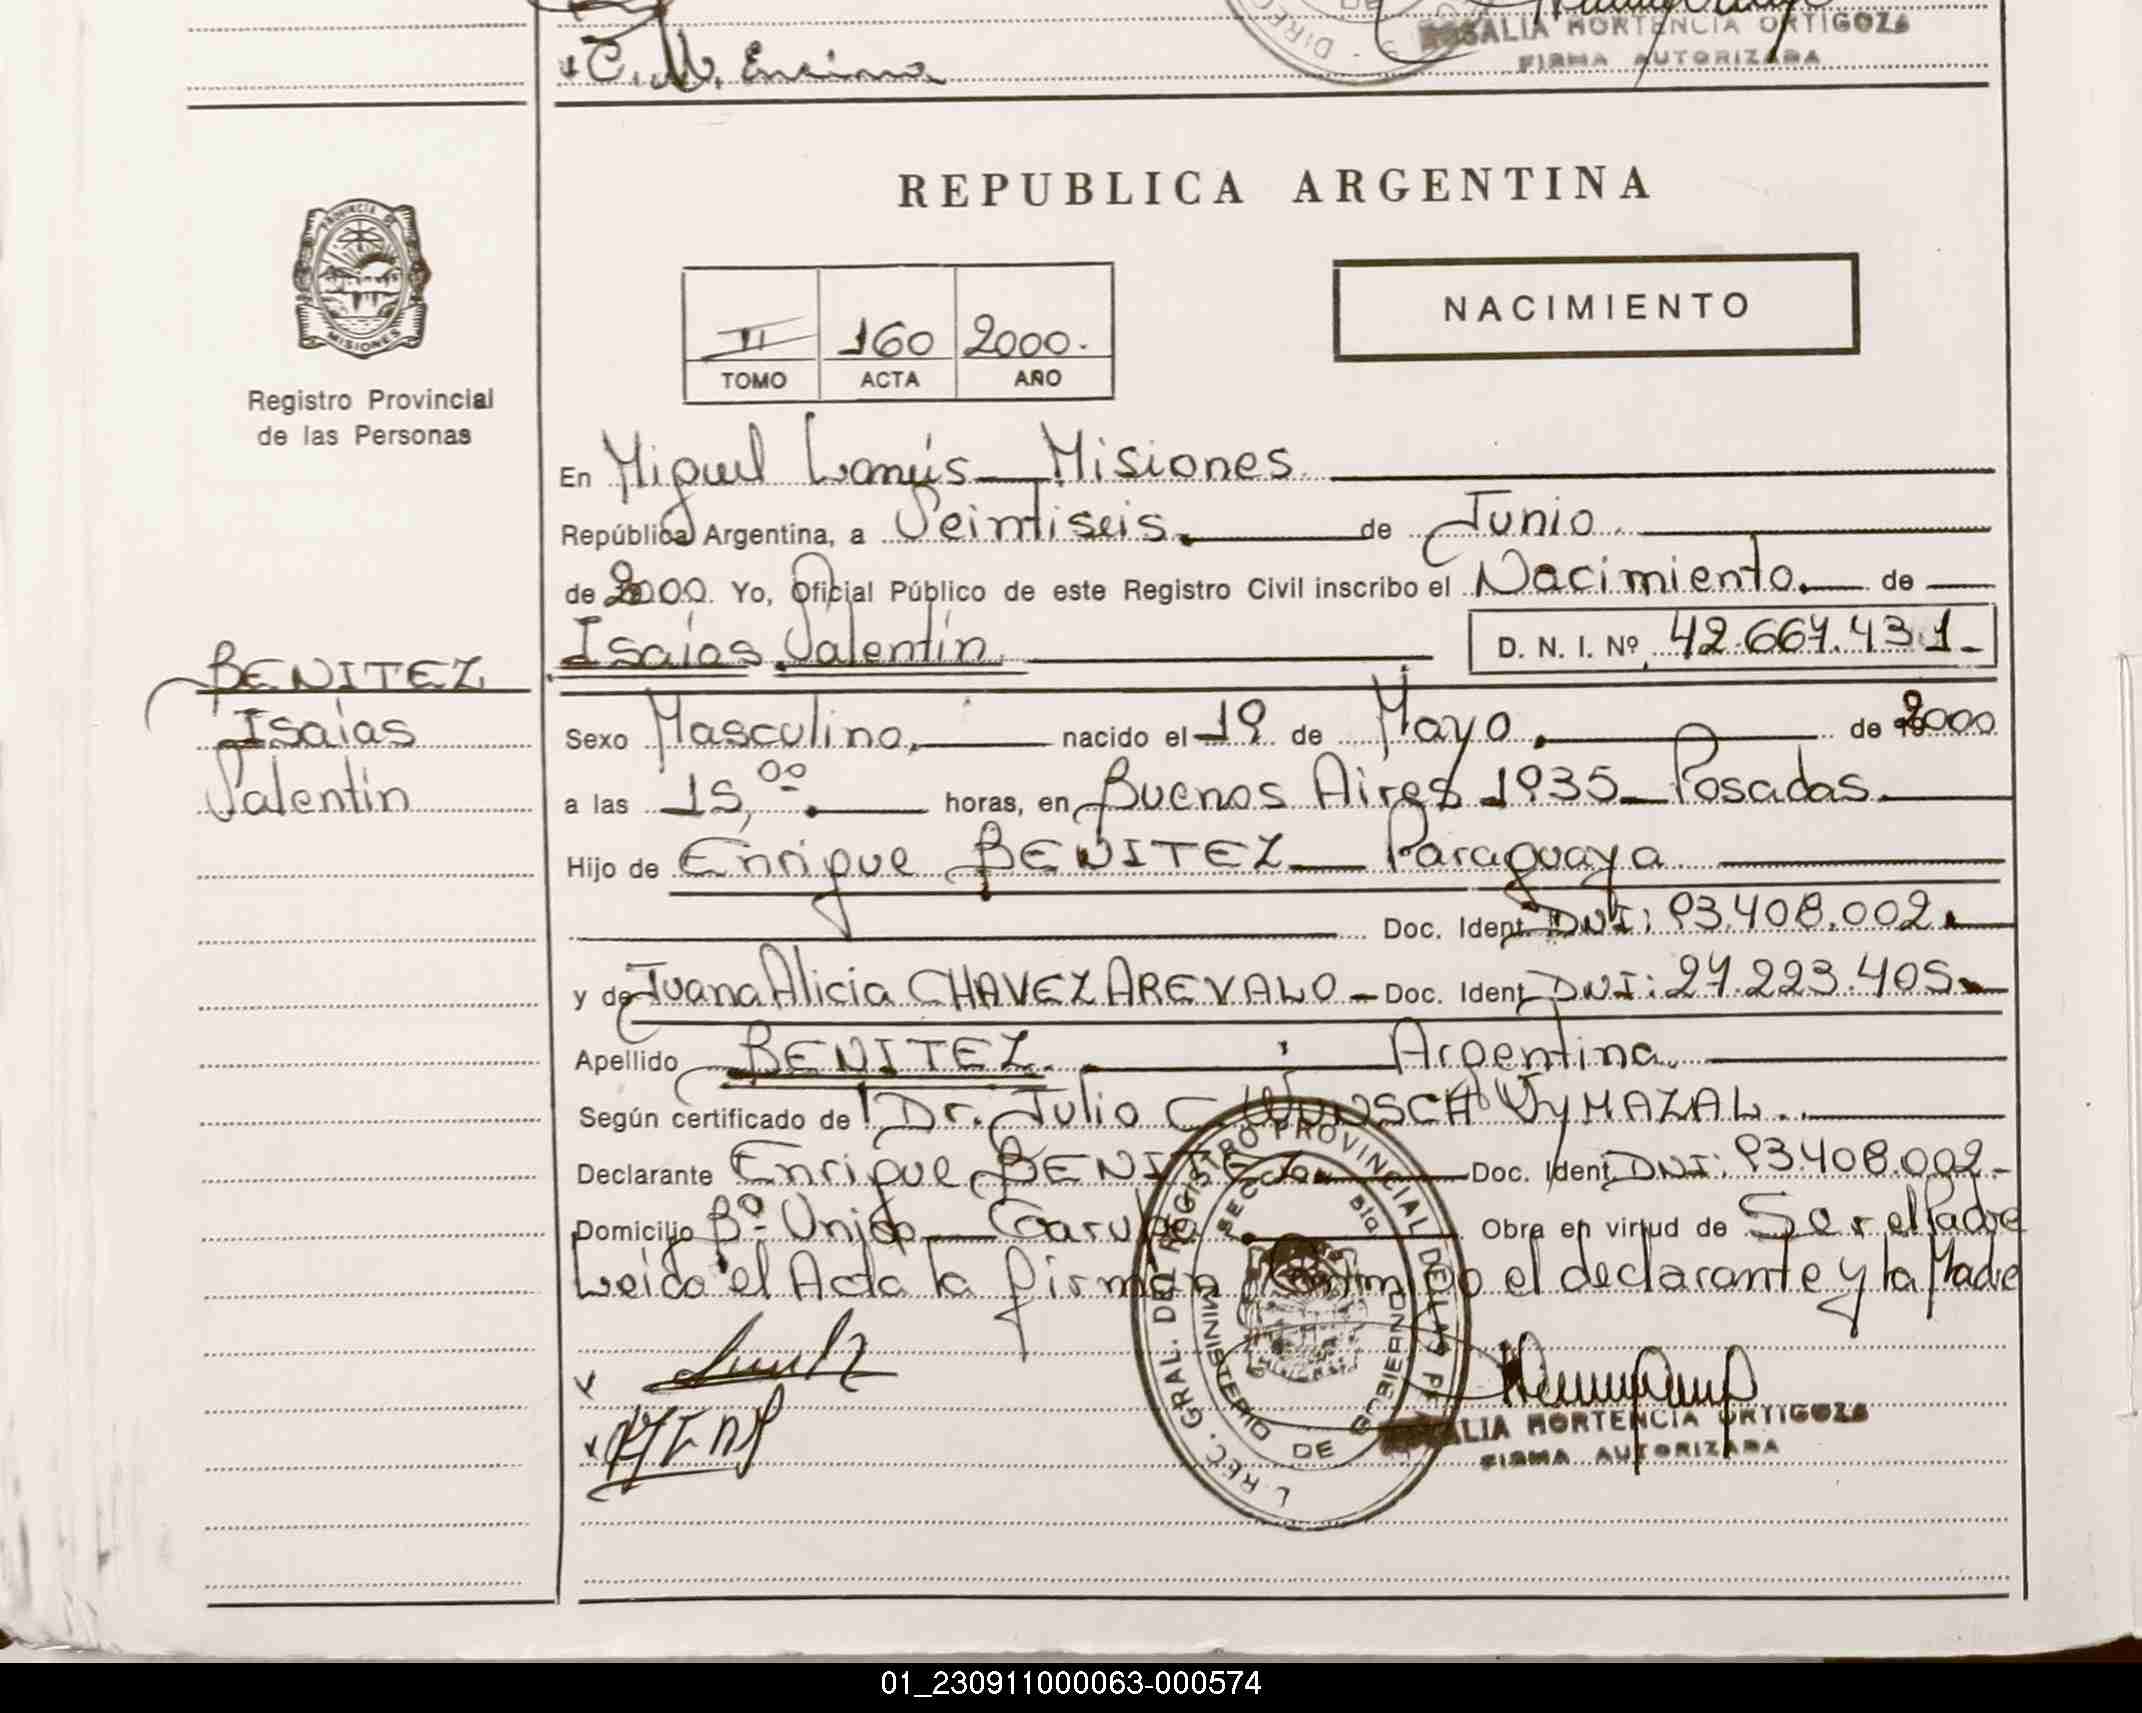 C. M. Encina
ROSALIA HORTENCIA ORTIGOZA
FIRMA AUTORIZADA
REPUBLICA ARGENTINA
PROVINCIA DE
MISIONES
NACIMIENTO
II 160 2000.
TOMO ACTA AÑO
Registro Provincial
de las Personas
En Miguel Lanús Misiones
República Argentina, a Veintiseis de Junio
de 2000 Yo, Oficial Público de este Registro Civil inscribo el Nacimiento de
Isaías Valentín D. N. I. Nº 42.667.431
BENITEZ
Isaías
Valentín
Sexo Masculino, nacido el 19 de Mayo de 2000
a las 15,00 horas, en Buenos Aires 1935 Posadas
Hijo de Enrique BENITEZ Paraguaya
Doc. Ident. DNI: 93.408.002
y de Juana Alicia CHAVEZ AREVALO Doc. Ident. DNI: 27.223.405
Apellido BENITEZ Argentina
Según certificado de Dr. Julio C WUNSCH VyMAZAL
Declarante Enrique BENITEZ Doc. Ident. DNI: 93.408.002
Domicilio Bº Unido Garupá Obra en virtud de Ser el Padre
Leída el Acta la firman conmigo el declarante y la Madre
REGISTRO PROVINCIAL DE LAS PE
MINISTERIO DE GOBIERNO
ROSALIA HORTENCIA ORTIGOZA
FIRMA AUTORIZADA
01_230911000063-000574